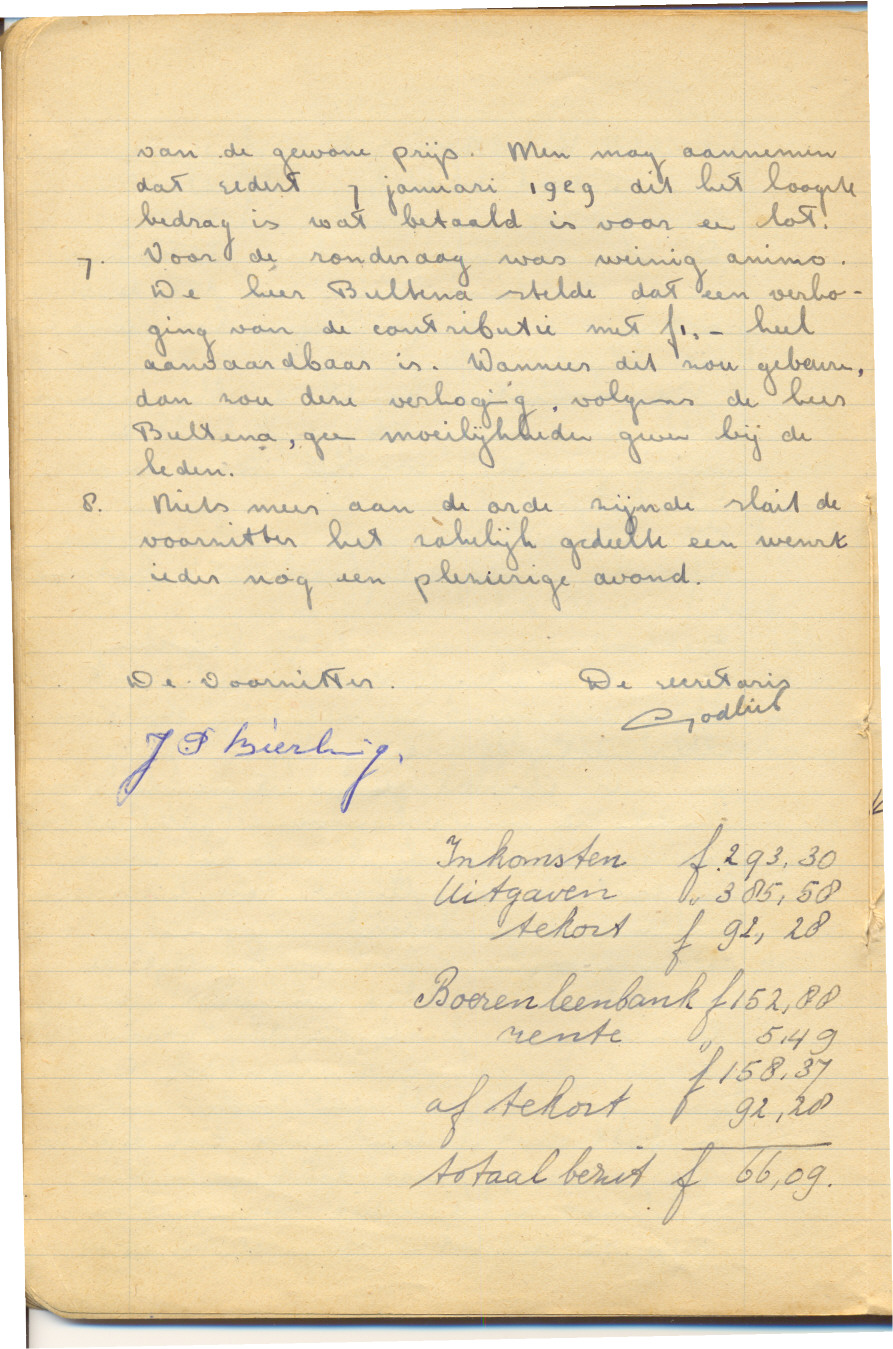 van de gewone prijs. Men mag aannemen
dat sedert 7 januari 1929 dit het hoogste
bedrag is wat betaald is voor een lot.
7. Voor de rondvraag was weinig animo.
De heer Bultena stelde dat een verho-
ging van de contributie met f1,- heel
aanvaardbaar is. Wanneer dit zou gebeuren,
dan zou deze verhoging, volgens de heer
Bultena, geen moeilijkheden geven bij de
leden.
8. Niets meer aan de orde zijnde sluit de
voorzitter het zakelijk gedeelte een wenst
ieder nog een plezierige avond.
De Voorzitter. De secretaris
Godlieb
J P Bierling.
Inkomsten f. 293,30
Uitgaven " 385,58
tekort f 92,28
Boerenleenbank f 152,88
rente " 5,49
f 158,37
af tekort 92,28
totaal bezit f 66,09.